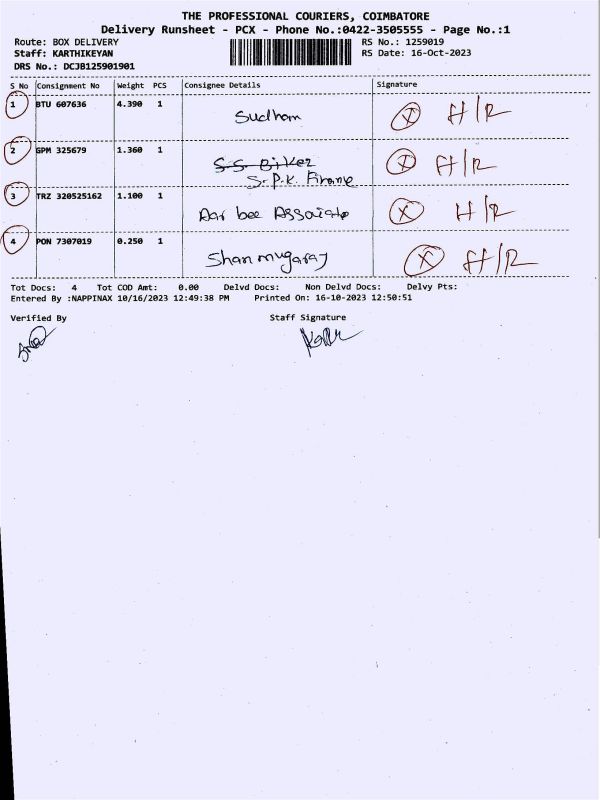 THE PROFESSIONAL COURIERS, COIMBATORE
Delivery Runsheet - PCX - Phone No.:0422-3505555 - Page No.:1
Route: BOX DELIVERY RS No.: 1259019
Staff: KARTHIKEYAN RS Date: 16-Oct-2023
DRS No.: DCJB125901901
S No Consignment No Weight PCS Consignee Details Signature
1 BTU 607636 4.390 1 Sudham X H/R
2 GPM 325679 1.360 1 S.S. Biker X H/R
S.P.K. Firame
3 TRZ 320525162 1.100 1 Aar bee Assoiate X H/R
4 PON 7307019 0.250 1 Shanmugaraj X H/R
Tot Docs: 4 Tot COD Amt: 0.00 Delvd Docs: Non Delvd Docs: Delvy Pts:
Entered By :NAPPINAX 10/16/2023 12:49:38 PM Printed On: 16-10-2023 12:50:51
Verified By Staff Signature